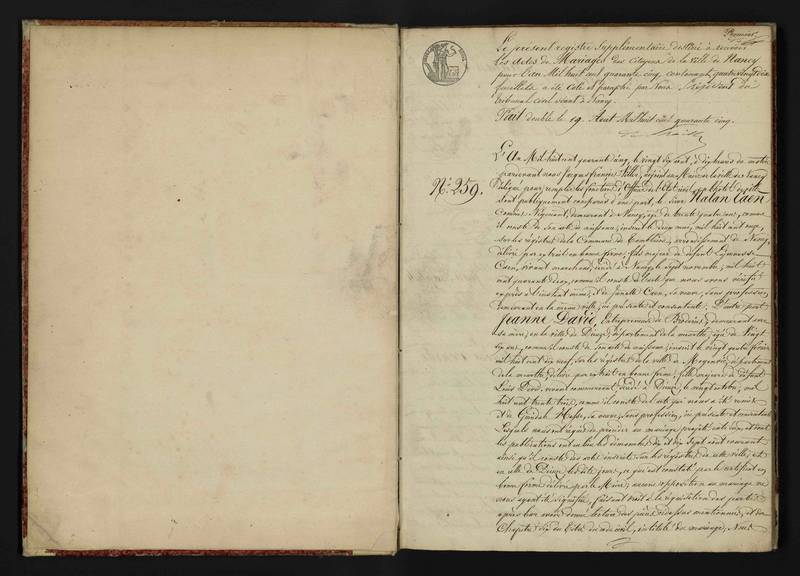 Premier
Le présent registre supplémentaire destiné à recevoir
les actes de Mariages des Citoyens de la Ville de Nancy
pour l'an Mil huit cent quarante cinq, contenant quatre vingt dix
feuillets a été coté et paraphé par Nous Président du
tribunal civil séant à Nancy.
Fait double le 19 Aout Mil huit cent quarante cinq.
N° 259.
L'An Mil huit cent quarante cinq, le vingt sept aout, à dix heures du matin
pardevant nous Jacques François adjoint au Maire de la ville de Nancy
délégué pour remplir les fonctions d'Officier de l'Etat civil,
sont publiquement comparus d'une part, le sieur Natan Caen
Commis Négociant, demeurant à Nancy, âgé de trente quatre ans, comme
il conste de son acte de naissance, inscrit le deux mai, mil huit cent onze,
sur les registres de la Commune de Tomblaine, arrondissement de Nancy,
délivré par extrait en bonne forme; fils majeur de défunt
Caen, vivant marchand, décédé à Nancy le sept novembre, mil huit
cent quarante deux, comme il conste de l'acte que nous avons vérifié
exprès à l'instant même, et de Caen, sa veuve, sans profession,
demeurant en la même ville, ici présente et consentante; D'autre part
Jeanne David, Entrepreneuse de Broderies, demeurant avec
sa mère, en la ville de Dieuze, département de la meurthe, âgée de Vingt
six ans, comme il conste de son acte de naissance, inscrit le vingt quatre février
mil huit cent dix neuf, sur les registres de la ville de département
de la meurthe, délivré par extrait en bonne forme; fille majeure de défunt
Louis David, vivant commerçant, décédé à Dieuze, le vingt octobre, mil
huit cent trente trois, comme il conste de l'acte qui nous a été remis
et de Hesse, sa veuve, sans profession, ici présente et consentante
Lesquels nous ont requis de procéder au mariage projeté entre eux et dont
les publications ont eu lieu les dimanches dix et dix sept aout courant
ainsi qu'il conste des actes inscrits sur les registres de cette ville, et
en celle de Dieuze les dits jours, ce qui est constaté par le certificat en
bonne forme délivré par le Maire; aucune opposition au mariage ne
nous ayant été signifiée, faisant droit à la réquisition des parties
après leur avoir donné lecture des pièces ci dessus mentionnées, et du
Chapitre six du Code civil, intitulé du mariage, Nous